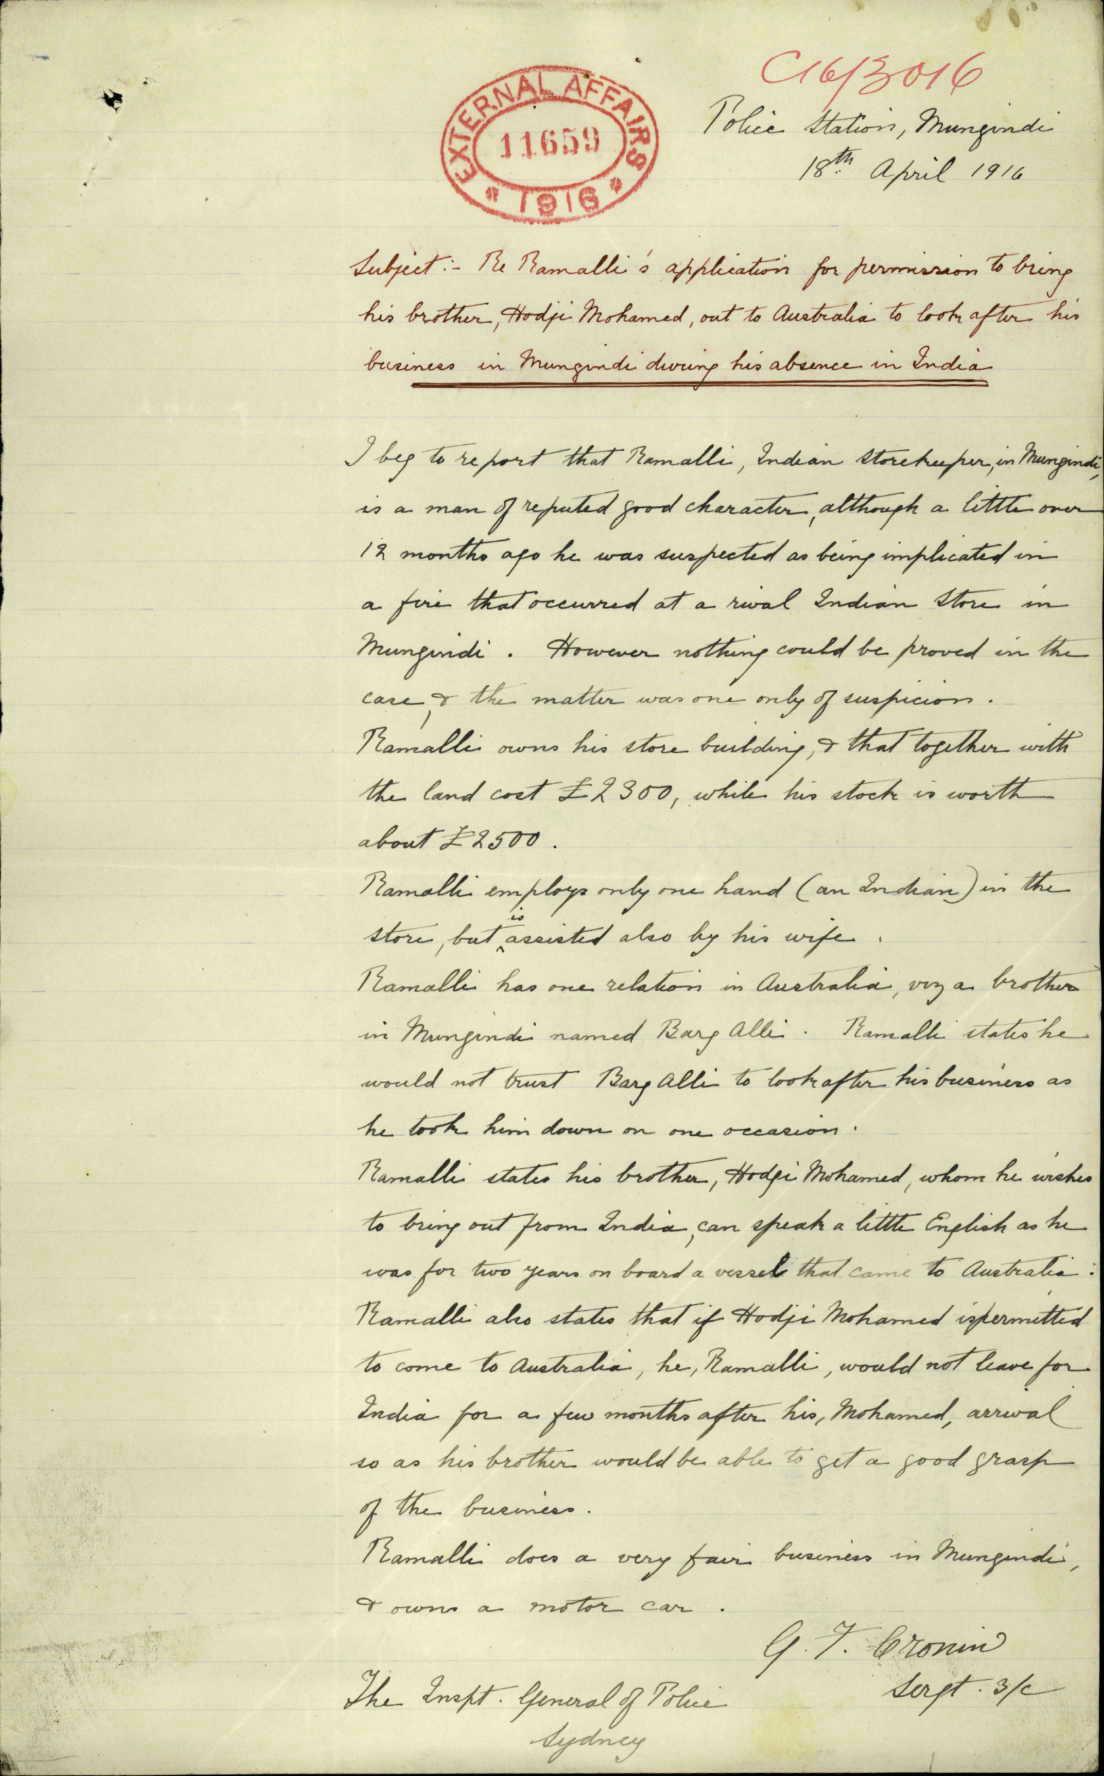 C16/3016
EXTERNAL AFFAIRS
11659
* 1916 *
Police Station, Mungindi
18th April 1916
Subject:- Re Ramalli's application for permission to bring
his brother, Hodji Mohamed, out to Australia to look after his
business in Mungindi during his absence in India
I beg to report that Ramalli, Indian storekeeper, in Mungindi,
is a man of reputed good character, although a little over
12 months ago he was suspected as being implicated in
a fire that occurred at a rival Indian Store in
Mungindi. However nothing could be proved in the
case, & the matter was one only of suspicion.
Ramalli owns his store building, & that together with
the land cost £2300, while his stock is worth
about £2500.
Ramalli employs only one hand (an Indian) in the
store, but is assisted also by his wife.
Ramalli has one relation in Australia, viz a brother
in Mungindi named Barg Alli. Ramalli states he
would not trust Barg Alli to look after his business as
he took him down on one occasion.
Ramalli states his brother, Hodji Mohamed, whom he wishes
to bring out from India, can speak a little English as he
was for two years on board a vessel that came to Australia.
Ramalli also states that if Hodji Mohamed is permitted
to come to Australia, he, Ramalli, would not leave for
India for a few months after his, Mohamed, arrival
so as his brother would be able to get a good grasp
of the business.
Ramalli does a very fair business in Mungindi,
& owns a motor car.
G. F. Cronin
Sergt. 3/c
The Inspt. General of Police
Sydney